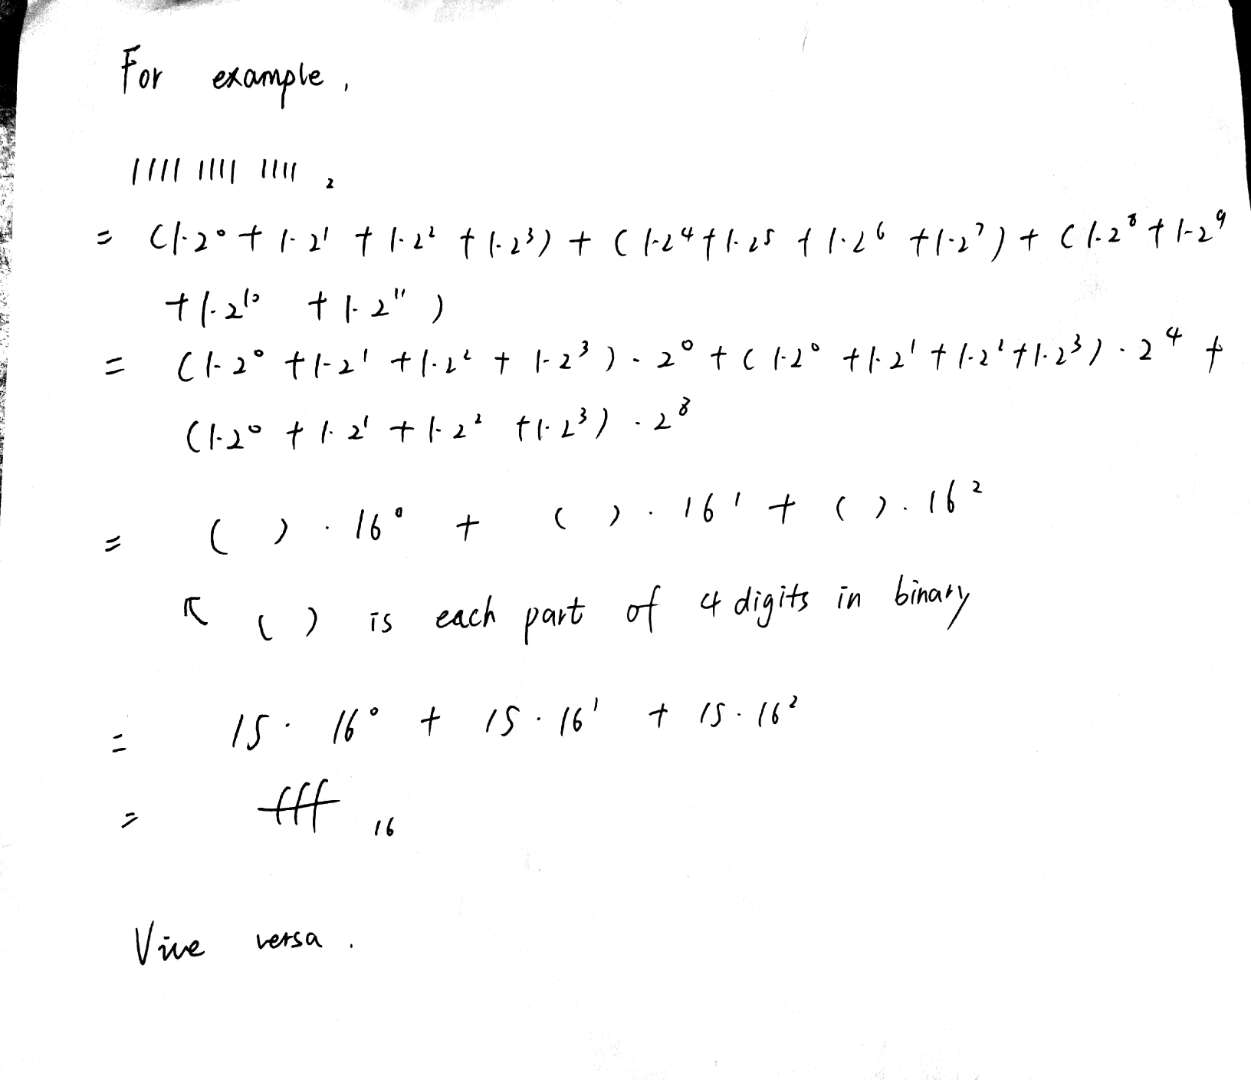 For example,
1111 1111 1111 ₂
= (1·2⁰ + 1·2¹ + 1·2² + 1·2³) + (1·2⁴ + 1·2⁵ + 1·2⁶ + 1·2⁷) + (1·2⁸ + 1·2⁹
+ 1·2¹⁰ + 1·2¹¹)
= (1·2⁰ + 1·2¹ + 1·2² + 1·2³) · 2⁰ + (1·2⁰ + 1·2¹ + 1·2² + 1·2³) · 2⁴ +
(1·2⁰ + 1·2¹ + 1·2² + 1·2³) · 2⁸
= ( ) · 16⁰ + ( ) · 16¹ + ( ) · 16²
↖ ( ) is each part of 4 digits in binary
= 15 · 16⁰ + 15 · 16¹ + 15 · 16²
= fff ₁₆
Vive versa .